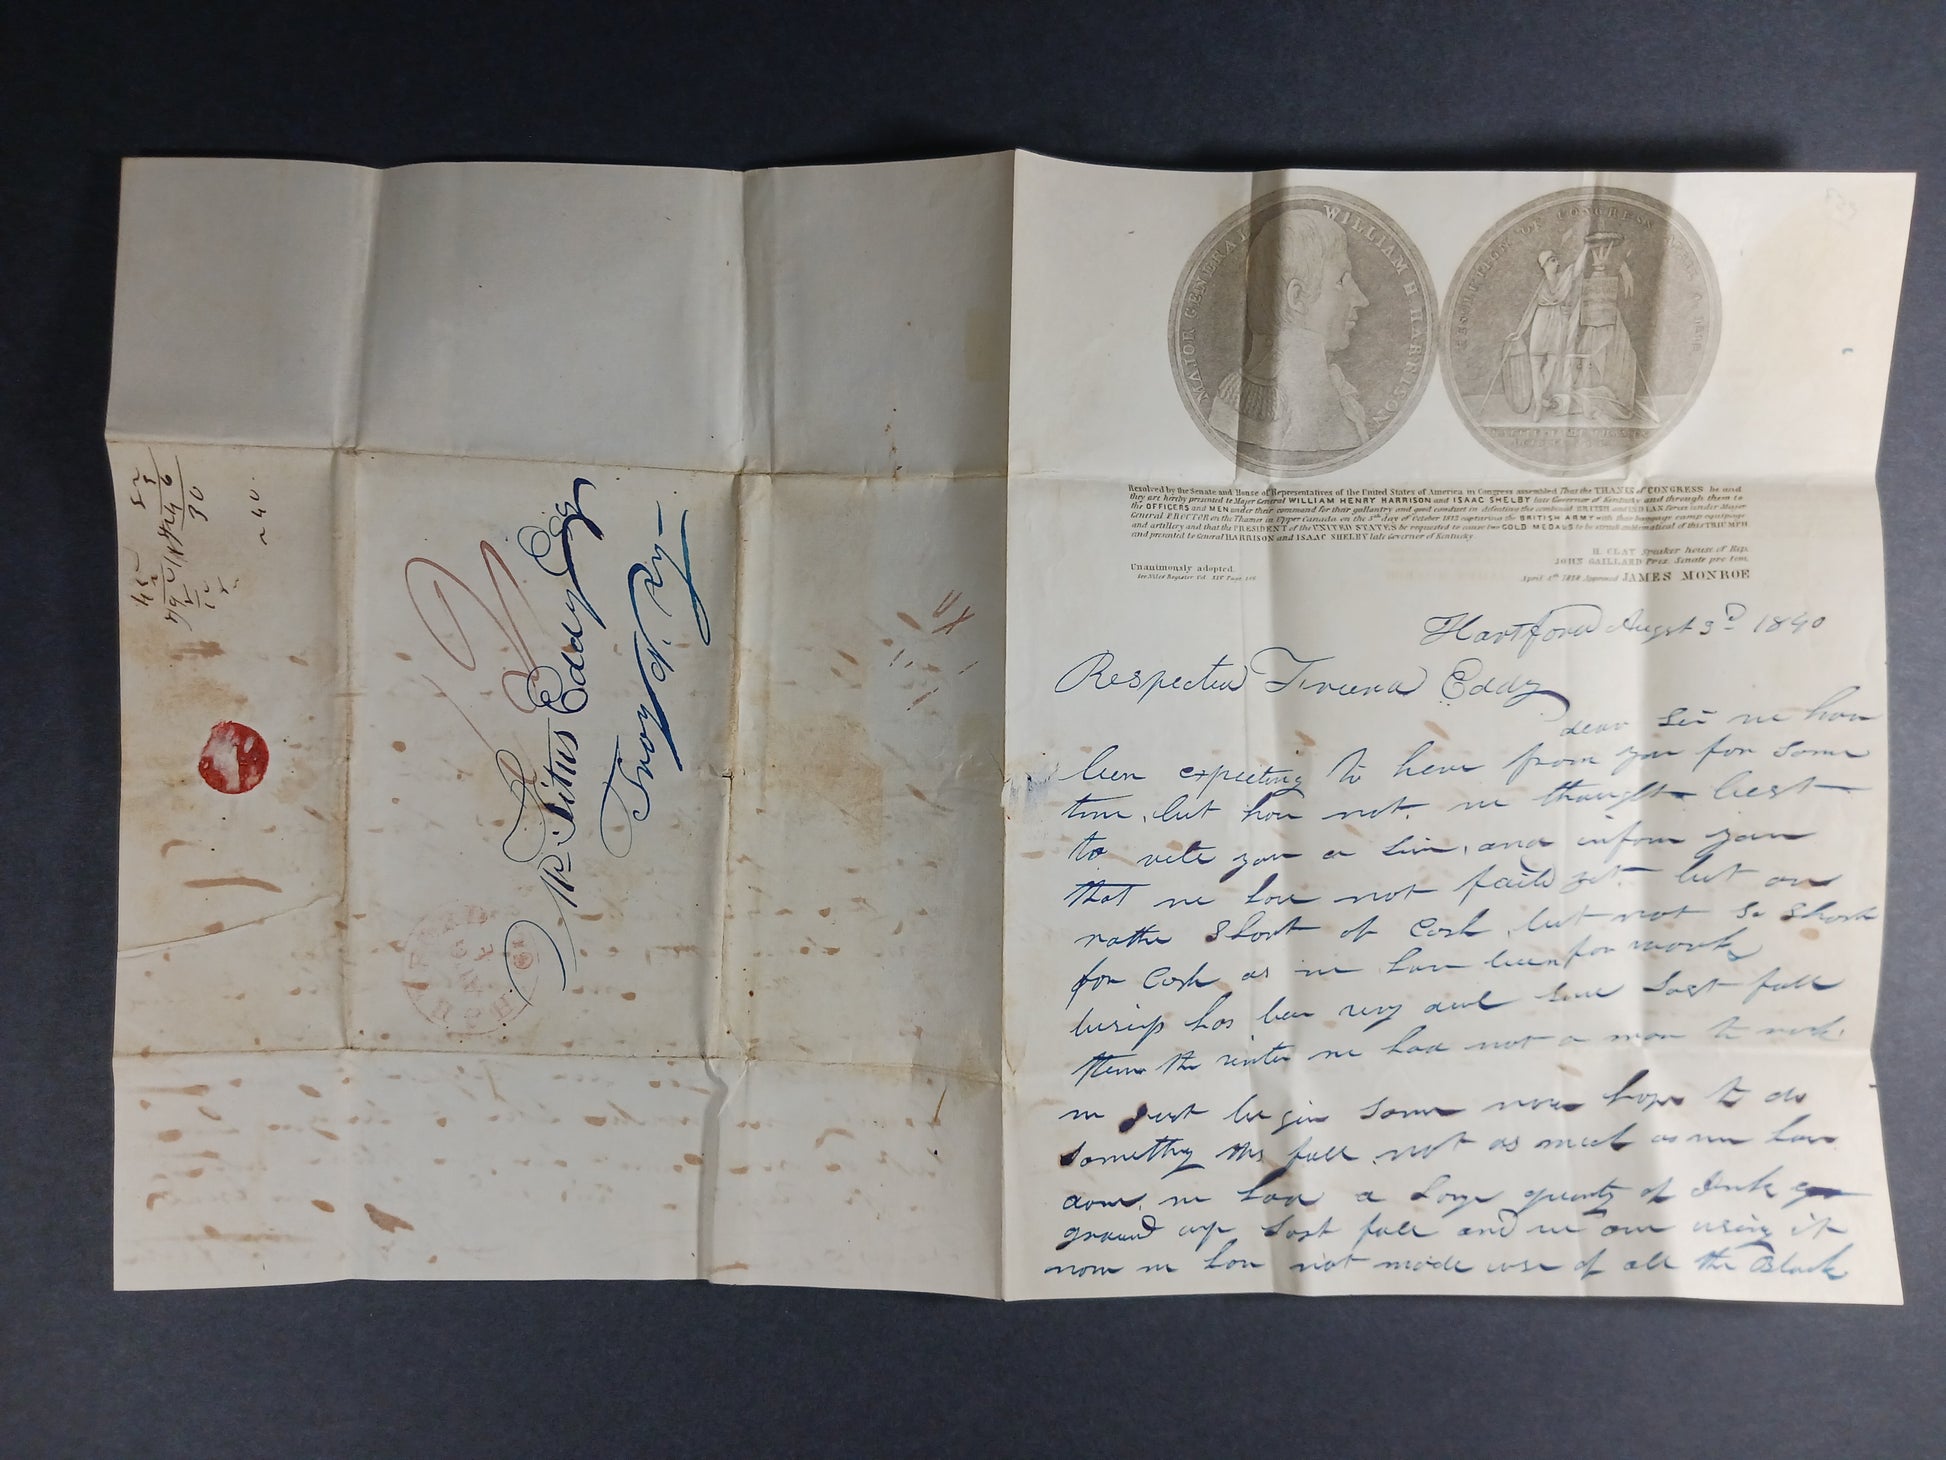 MAJOR GENERAL WILLIAM H. HARRISON
RESOLUTION OF CONGRESS APRIL 4. 1818
Resolved by the Senate and House of Representatives of the United States of America in Congress assembled That the THANKS of CONGRESS be and
they are hereby presented to Major General WILLIAM HENRY HARRISON and ISAAC SHELBY late Governor of Kentucky and through them to
the OFFICERS and MEN under their command for their gallantry and good conduct in defeating the combined BRITISH and INDIAN forces under Major
General PROCTOR on the Thames in Upper Canada on the 5th day of October 1813 capturing the BRITISH ARMY with their baggage camp equipage
and artillery and that the PRESIDENT of the UNITED STATES be requested to cause two GOLD MEDALS to be struck emblematical of this TRIUMPH
and presented to General HARRISON and ISAAC SHELBY late Governor of Kentucky.
H. CLAY Speaker house of Rep.
JOHN GAILLARD Prez. Senate pro tem.
Unanimously adopted.
See Niles Register Vol. XIV Page
April 4th 1818 Approved JAMES MONROE
Hartford Augst 3d 1840
Respected Friend Eddy
dear Sir we have
been expecting to hear from you for some
time, but have not, we thought best
to write you a line, and inform you
that we have not faild yet, but are
rather short of Cash, but not so short
for Cash as we have been for work
business has been very dull since last fall
then the winter we had not a man to work.
we just begin some now hope to do
something this fall, not as much as we have
done. we had a large quantity of Ink
ground up last fall and we are using it
now we have not made use of all the Black
Mr Titus Eddy Esq
Troy N. Y.